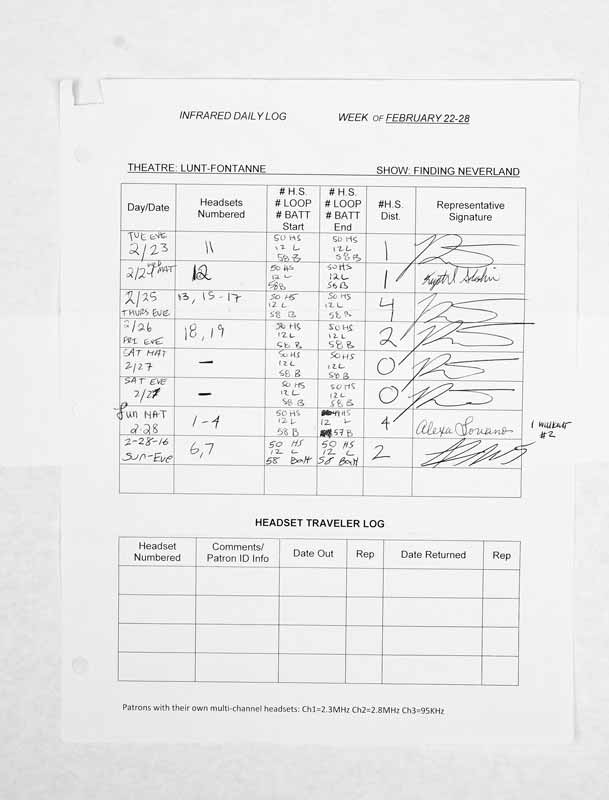 INFRARED DAILY LOG WEEK OF FEBRUARY 22-28
THEATRE: LUNT-FONTANNE SHOW: FINDING NEVERLAND
Day/Date
Headsets
Numbered
# H.S.
# LOOP
# BATT
Start
# H.S.
# LOOP
# BATT
End
#H.S.
Dist.
Representative
Signature
TUE EVE
2/23
11
50 HS
12 L
58 B
50 HS
12 L
58 B
1
MAT
12
50 HS
12 L
58 B
50 HS
12 L
58 B
1
2/25
THURS EVE
13, 15-17
50 HS
12 L
58 B
50 HS
12 L
58 B
4
2/26
FRI EVE
18, 19
50 HS
12 L
58 B
50 HS
12 L
58 B
2
SAT MAT
2/27
–
50 HS
12 L
58 B
50 HS
12 L
58 B
0
SAT EVE
2/27
–
50 HS
12 L
58 B
50 HS
12 L
58 B
0
Sun MAT
2:28
1-4
50 HS
12 L
58 B
HS
12 L
57 B
4
Alexa
1 walkout
#2
2-28-16
Sun-Eve
6,7
50 HS
12 L
58 Batt
50 HS
12 L
58 Batt
2
HEADSET TRAVELER LOG
Headset
Numbered
Comments/
Patron ID Info
Date Out
Rep
Date Returned
Rep
Patrons with their own multi-channel headsets: Ch1=2.3MHz Ch2=2.8MHz Ch3=95KHz